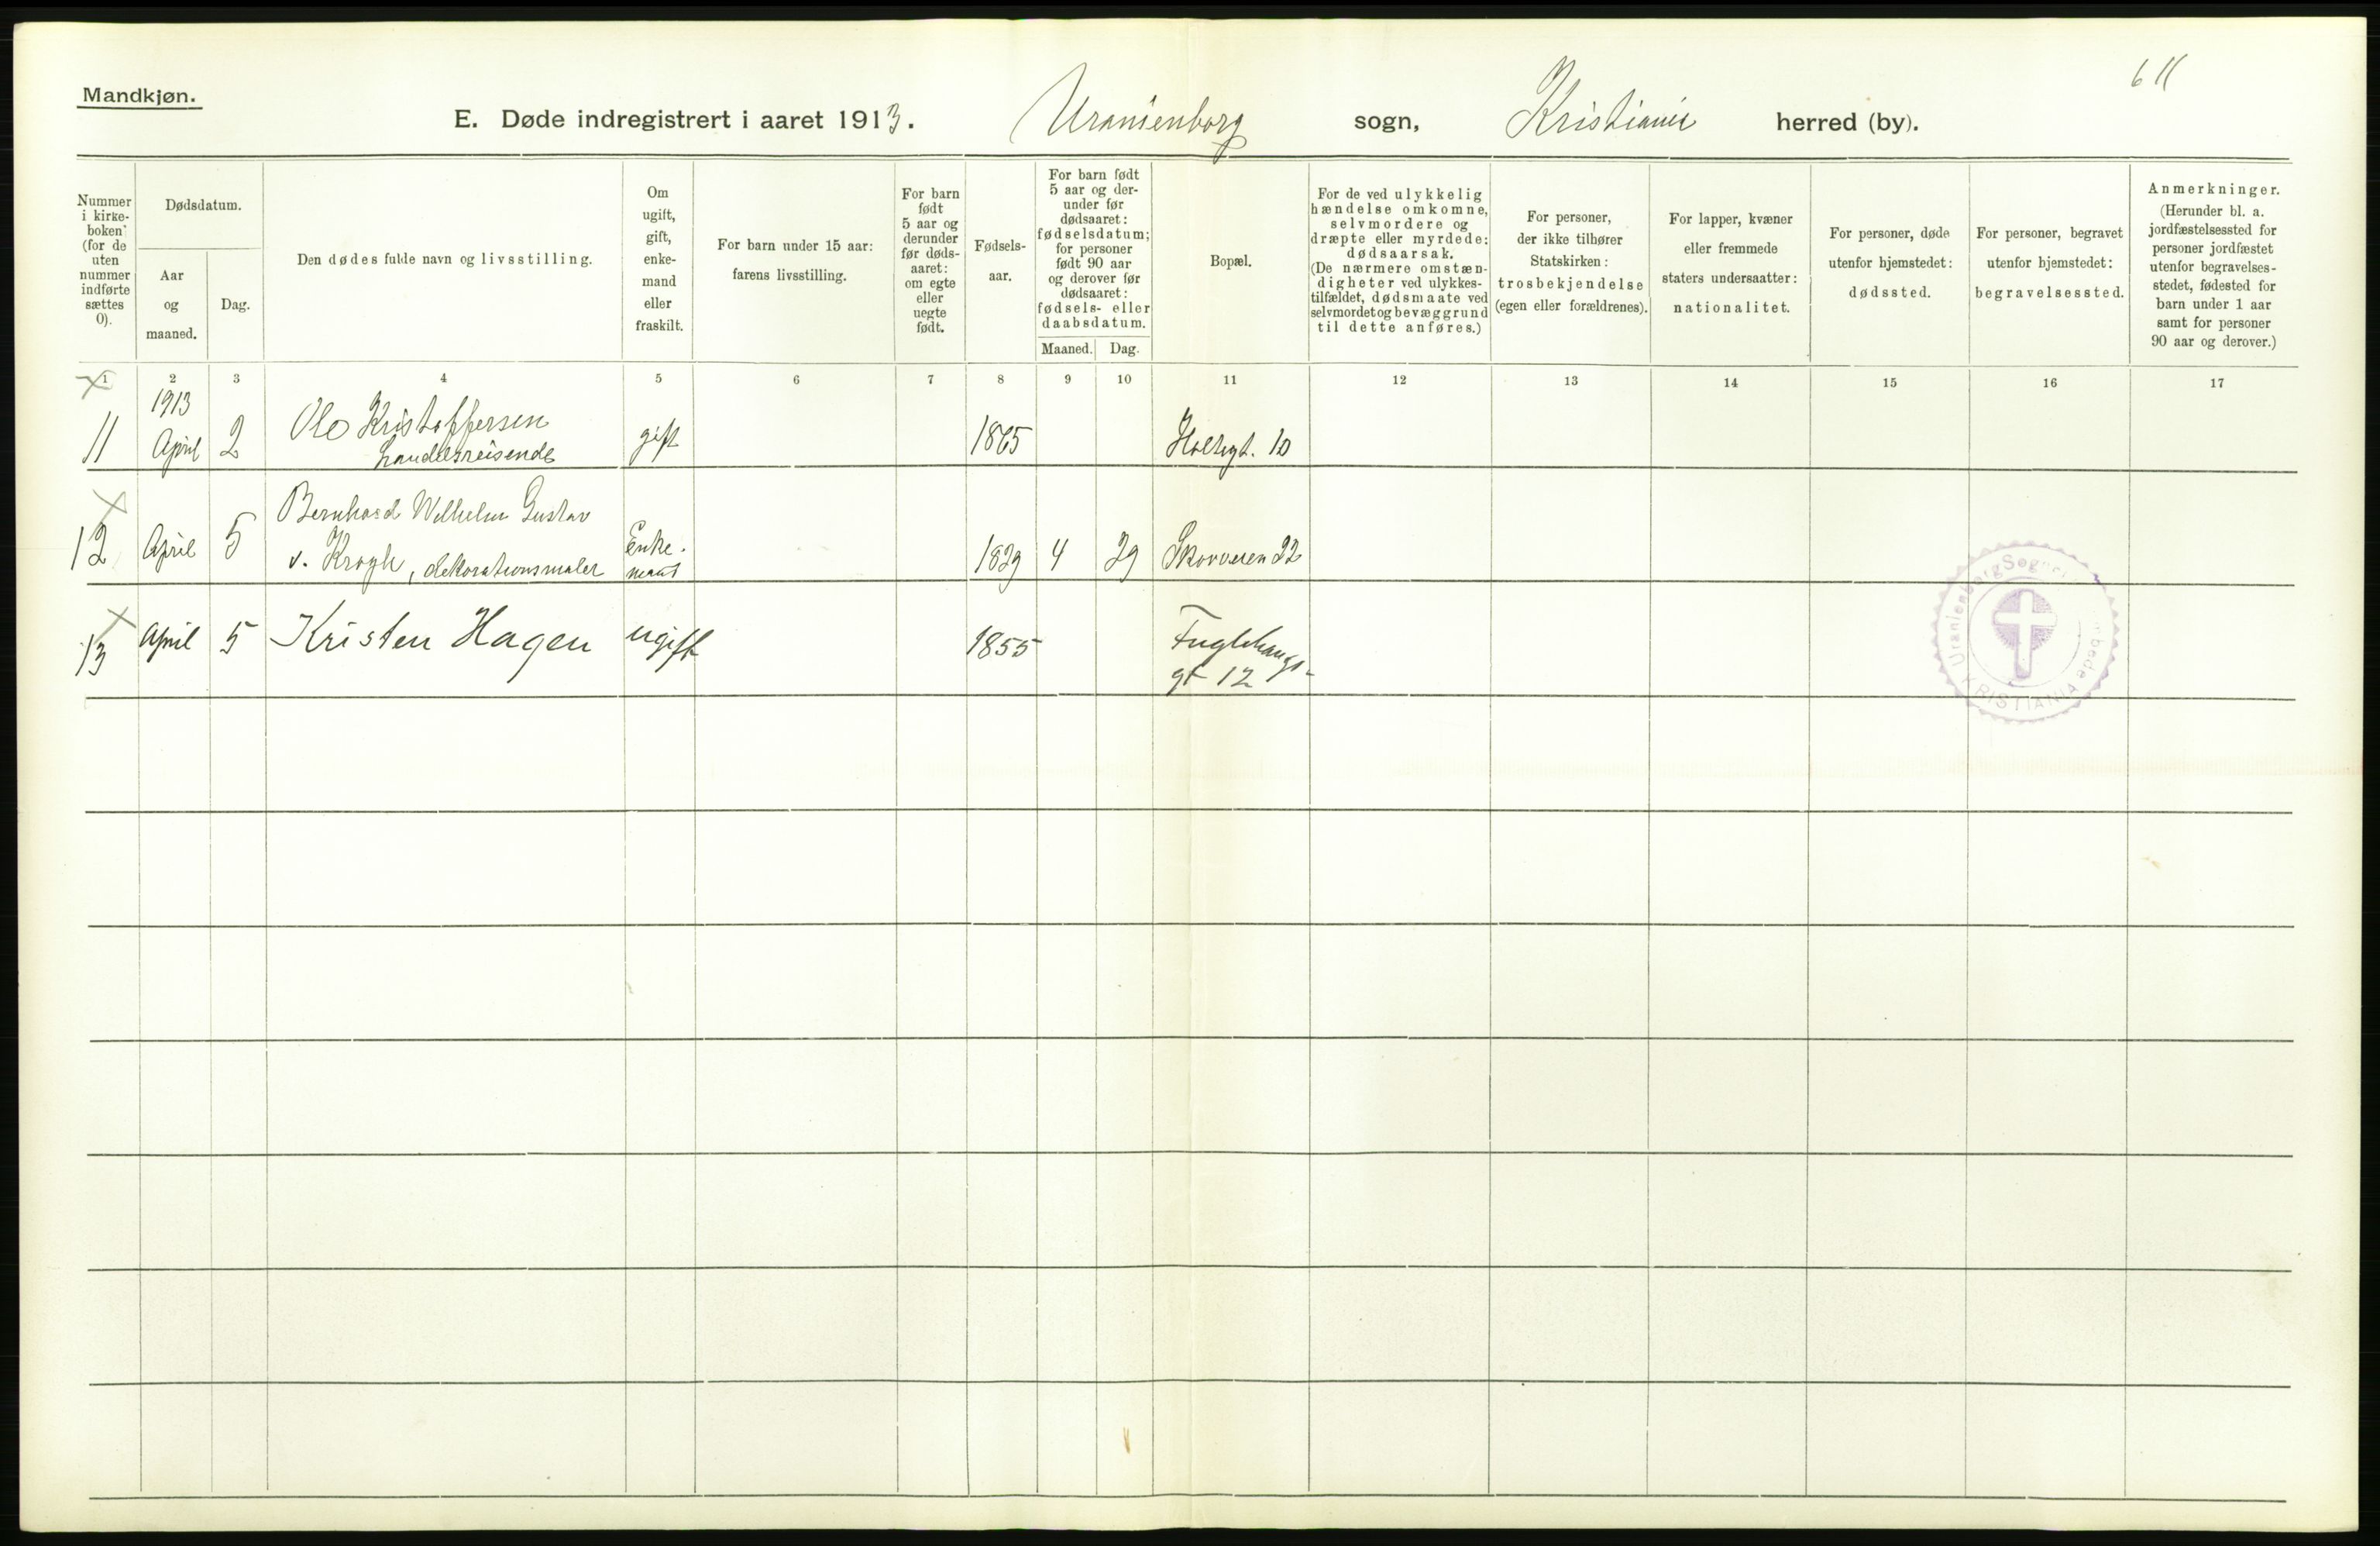 Mandkjøn.
6 11
E. Døde indregistrert i aaret 1913. Uranienborg sogn, Kristiania herred (by).
Nummer
i kirke-
boken
(for de
uten
nummer
indførte
sættes
0).
Dødsdatum.
Aar
og
maaned.
Dag.
Den dødes fulde navn og livsstilling.
Om
ugift,
gift,
enke-
mand
eller
fraskilt.
For barn under 15 aar:
farens livsstilling.
For barn
født
5 aar og
derunder
før døds-
aaret:
om egte
eller
uegte
født.
Fødsels-
aar.
For barn født
5 aar og der-
under før
dødsaaret:
fødselsdatum;
for personer
født 90 aar
og derover før
dødsaaret:
fødsels- eller
daabsdatum.
Maaned.
Dag.
Bopæl.
For de ved ulykkelig
hændelse omkomne,
selvmordere og
dræpte eller myrdede:
dødsaarsak.
(De nærmere omstæn-
digheter ved ulykkes-
tilfældet, dødsmaate ved
selvmordet og bevæggrund
til dette anføres.)
For personer,
der ikke tilhører
Statskirken:
trosbekjendelse
(egen eller forældrenes).
For lapper, kvæner
eller fremmede
staters undersaatter:
nationalitet.
For personer, døde
utenfor hjemstedet:
dødssted.
For personer, begravet
utenfor hjemstedet:
begravelsessted.
Anmerkninger.
(Herunder bl. a.
jordfæstelsessted for
personer jordfæstet
utenfor begravelses-
stedet, fødested for
barn under 1 aar
samt for personer
90 aar og derover.)
1 2 3 4 5 6 7 8 9 10 11 12 13 14 15 16 17
1913
11 April 2 Ole Kristoffersen gift 1865 Holtegt. 10
handelsreisende
Bernhard Wilhelm Gustav
12 April 5 v. Krogh, dekorationsmaler Enke-
mand 1829 4 29 Skovveien 22
13 April 5 Kristen Hagen ugift 1855 Fuglehaugs-
gt 12
Uranienborg Sogne
KRISTIANIA